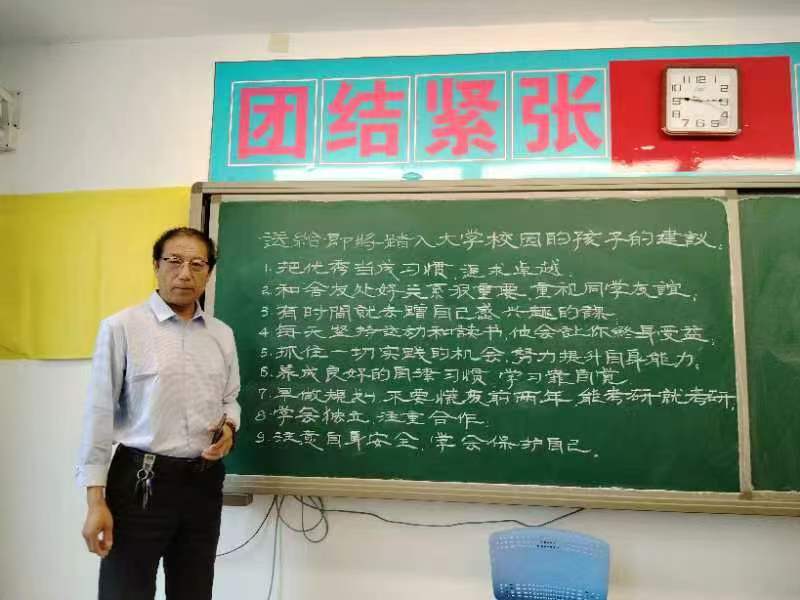 团结紧张
送给即将踏入大学校园的孩子的建议:
1.把优秀当成习惯,追求卓越.
2.和舍友处好关系很重要,重视同学友谊;
3.有时间就去蹭自己感兴趣的课.
4.每天坚持运动和读书,他会让你终身受益.
5.抓住一切实践的机会,努力提升自身能力.
6.养成良好的自律习惯,学习靠自觉
7.早做规划,不要慌废前两年,能考研就考研,
8.学会独立,注重合作.
9.注意自身安全,学会保护自己.